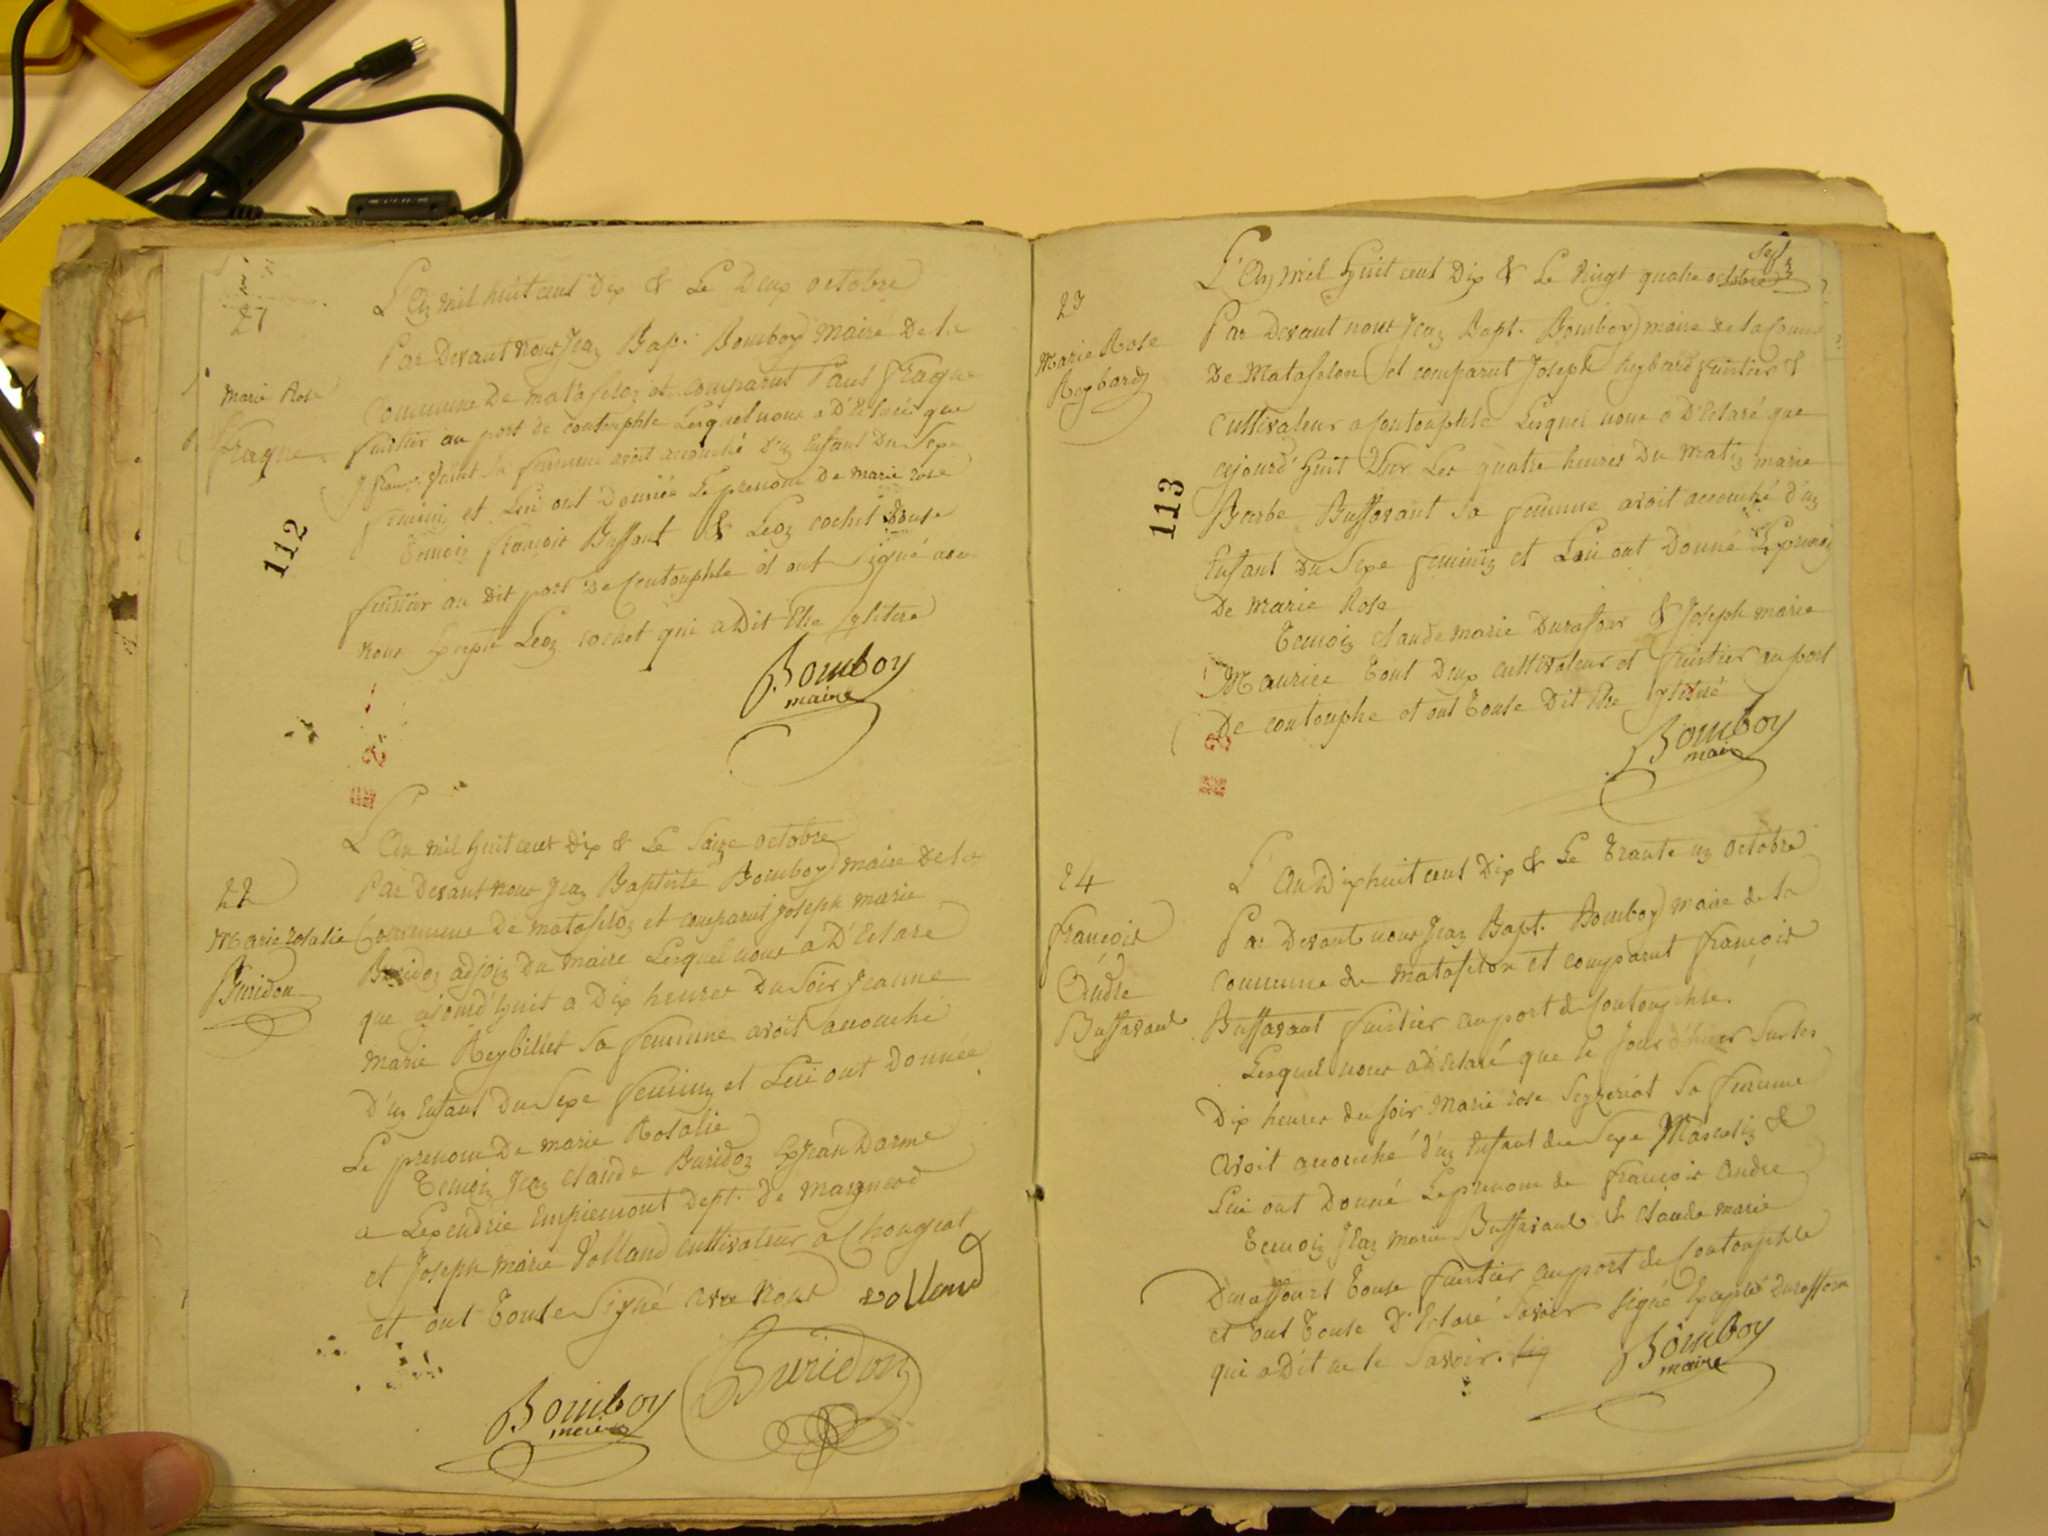 27
Marie Rose
Fragne
112
L'an mil huit cent Dix & Le Deux octobre
Par Devant nous Jean Bapt. Bomboy Maire De la
Commune De matafelon et comparut Paul fragne
fustier au port de Coutouphle Lequel nous a D'Eclaré que
Sa femme avoit acouché D'un Enfant Du Sexe
feminin et Lui ont Donnée Le prenom De marie rose
Temoin françois Buffaut & Leon cochet Toute
fustier au Dit port De Coutouphle et ont Signé avec
nous Excepté Leon cochet qui a Dit Etre ylitere
Bomboy
maire
22
Marie rosalie
Buridon
L'an mil huit cent Dix & Le Saize octobre
Par Devant nous Jean Baptiste Bomboy maire De la
Commune De matafelon et comparut Joseph marie
Buridon adjoin Du maire Lequel nous a D'Eclaré
que ajourd'huit a Dix heures Du Soir Jeanne
marie Reybillet Sa femme avoit acouché
D'un Enfant Du Sexe feminin et Lui ont Donnée
Le prenom De marie Rosalie
Temoin Jean claude Buridon Exjean Darme
a Lexendrie Empiemont Dept. De maryncod
et Joseph marie Volland cultivateur a Chougeat
et ont Toute Signé avec nous volland
Bomboy
maire
Buridon
23
Marie Rose
Reybard
113
L'an mil huit cent Dix & Le vingt quatre octobre
Par Devant nous Jean Bapt. Bomboy maire de la Comune
De Matafelon Et comparut Joseph heybard fustier &
Cultivateur a Coutouphle Lequel nous a D'Eclaré que
ajourd'huit Sur Les quatre heures Du Matin marie
Barbe Buffavant Sa femme avoit acouché d'un
Enfant Du Sexe feminin et Lui ont Donné Le prenom
De Marie Rose
Temoin claude marie Duraffour & Joseph marie
Maurice Tout Deux cultivateur et fustier au port
De coutouphe et ont Toute Dit Etre ylitéré
Bomboy
maire
24
françois
André
Buffavant
L'an Dix huit cent Dix & Le Trante un octobre
Par Devant nous Jean Bapt. Bomboy maire de la
commune de matafelon et comparut françois
Buffavant fustier au port de Coutouphle
Lequel nous a d'Eclaré que le Jour d'hier Sur les
Dix heures du soir Marie rose Seyzeriat Sa femme
avoit acouché d'un Enfant du Sexe Masculin &
Lui ont Donné Le prenom de françois andre
Temoin Jean Marie Buffavant & claude marie
Duraffourt Toute fustier au port de Coutouphle
et ont Toute D'Eclaré Savoir signé Excepté Duraffour
qui a Dit ne le Savoir.
Bomboy
maire